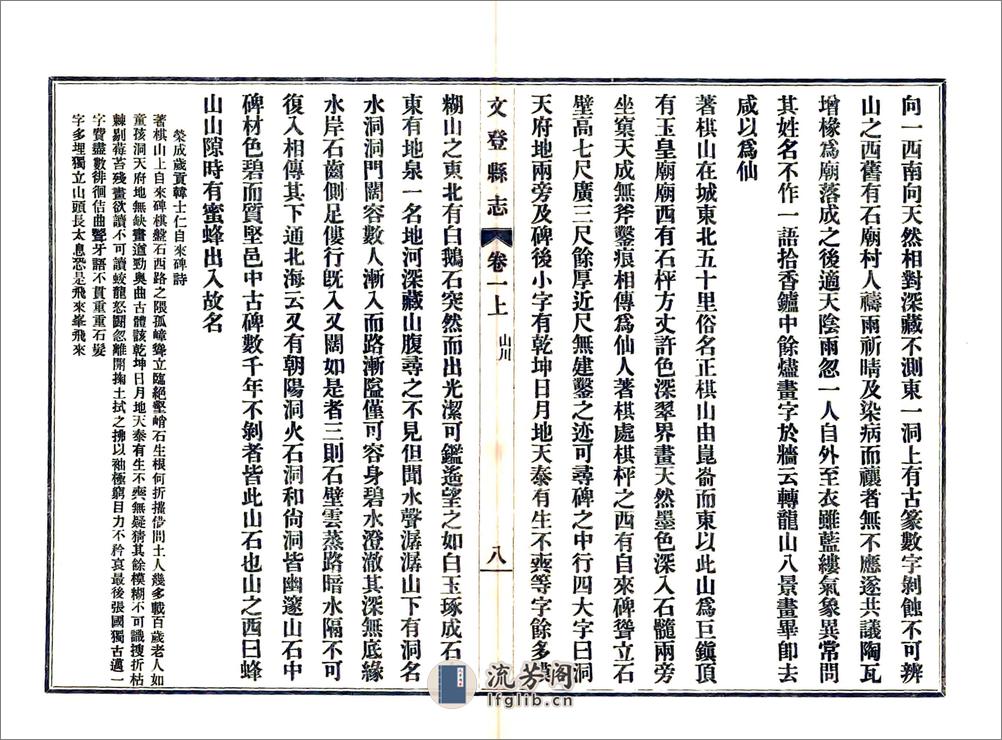 向一西南向天然相對深藏不測東一洞上有古篆數字剝蝕不可辨
山之西舊有石廟村人禱雨祈晴及染病而禳者無不應遂共議陶瓦
增椽爲廟落成之後適天陰雨忽一人自外至衣雖藍縷氣象異常問
其姓名不作一語拾香鑪中餘燼畫字於牆云轉龍山八景畫畢卽去
咸以爲仙
著棋山在城東北五十里俗名正棋山由崑嵛而東以此山爲巨鎭頂
有玉皇廟廟西有石枰方丈許色深翠界畫天然墨色深入石髓兩旁
坐窠天成無斧鑿痕相傳爲仙人著棋處棋枰之西有自來碑聳立石
壁高七尺廣三尺餘厚近尺無建鑿之迹可尋碑之中行四大字曰洞
天府地兩旁及碑後小字有乾坤日月地天泰有生不䘮等字餘多模
文登縣志
卷一上
山川
八
糊山之東北有白鵝石突然而出光潔可鑑遙望之如白玉琢成石
東有地泉一名地河深藏山腹尋之不見但聞水聲潺潺山下有洞名
水洞洞門闊容數人漸入而路漸隘僅可容身碧水澄澈其深無底緣
水岸石齒側足僂行旣入又闊如是者三則石壁雲蒸路暗水隔不可
復入相傳其下通北海云又有朝陽洞火石洞和尙洞皆幽邃山石中
碑材色碧而質堅邑中古碑數千年不剝者皆此山石也山之西曰蜂
山山隙時有蜜蜂出入故名
榮成歲貢韓士仁自來碑詩
著棋山上自來碑棋盤石西路之隈孤嶂聳立臨絕壑峭石生根何折摧借問土人幾多載百歲老人如
童孩洞天府地無缺畫遒勁奧曲古體該乾坤日月地天泰有生不䘮無疑猜其餘模糊不可識搜折枯
棘剔莓苔殘畫欲讀不可讀蛟龍怒鬭忽離開掬土拭之拂以袖極窮目力不矜哀最後張國獨古邁一
字費盡數徘徊佶曲聱牙語不貫重重石髮
字多埋獨立山頭長太息恐是飛來峯飛來
流芳阁
lfglib.cn